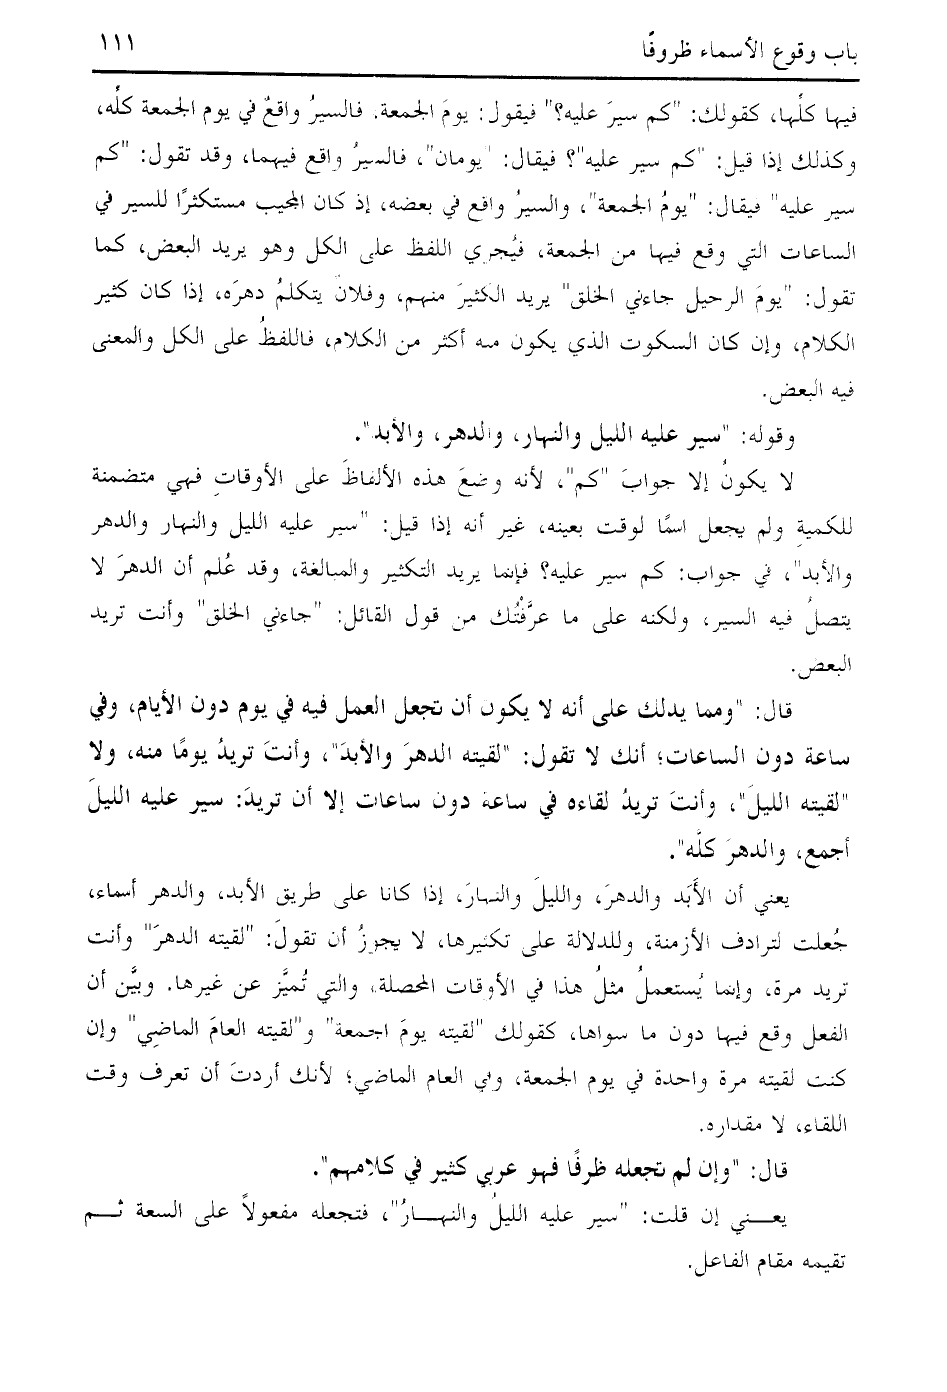 باب وقوع الأسماء ظروفًا
١١١
فيها كلِّها، كقولك: "كم سيرَ عليه؟" فيقول: يومَ الجمعة. فالسيرُ واقعٌ في يوم الجمعة كلُه،
وكذلك إذا قيل: "كم سير عليه"؟ فيقال: "يومان"، فالسيرُ واقع فيهما، وقد تقول: "كم
سير عليه" فيقال: "يومُ الجمعة"، والسيرُ واقع في بعضه، إذ كان المجيب مستكثرًا للسير في
الساعات التي وقع فيها من الجمعة، فيُجري اللفظ على الكل وهو يريد البعض، كما
تقول: "يومَ الرحيل جاءني الخلق" يريد الكثيرَ منهم، وفلانٌ يتكلمُ دهرَه، إذا كان كثير
الكلام، وإن كان السكوت الذي يكون منه أكثر من الكلام، فاللفظُ على الكل والمعنى
فيه البعض.
وقوله: "سير عليه الليل والنهار، والدهر، والأبد".
لا يكونُ إلا جوابَ "كم"، لأنه وضعَ هذه الألفاظَ على الأوقاتِ فهي متضمنة
للكميةِ ولم يجعل اسمًا لوقت بعينه، غير أنه إذا قيل: "سير عليه الليل والنهار والدهر
والأبد"، في جواب: كم سير عليه؟ فإنما يريد التكثير والمبالغة، وقد عُلم أن الدهرَ لا
يتصلُ فيه السير، ولكنه على ما عرَّفْتُك من قول القائل: "جاءني الخلق" وأنت تريد
البعض.
قال: "ومما يدلك على أنه لا يكون أن تجعل العمل فيه في يوم دون الأيام، وفي
ساعة دون الساعات؛ أنك لا تقول: "لقيته الدهرَ والأبدَ"، وأنتَ تريدُ يومًا منه، ولا
"لقيته الليلَ"، وأنتَ تريدُ لقاءه في ساعة دون ساعات إلا أن تريدَ: سير عليه الليلَ
أجمع، والدهرَ كلَّه".
يعني أن الأَبَد والدهرَ، والليلَ والنهارَ، إذا كانا على طريق الأبد، والدهر أسماء،
جُعلت لترادف الأزمنة، وللدلالة على تكثيرها، لا يجوزُ أن تقولَ: "لقيته الدهرَ" وأنت
تريد مرة، وإنما يُستعملُ مثلُ هذا في الأوقات المحصلة، والتي تُميَّز عن غيرها. وبيَّن أن
الفعل وقع فيها دون ما سواها، كقولك "لقيته يومَ الجمعة" و"لقيته العامَ الماضي" وإن
كنت لقيته مرة واحدة في يوم الجمعة، وفي العام الماضي؛ لأنك أردتَ أن تعرف وقت
اللقاء، لا مقداره.
قال: "وإن لم تجعله ظرفًا فهو عربي كثير في كلامهم".
يعـــني إن قلت: "سير عليه الليلُ والنهـــارُ"، فتجعله مفعولاً على السعة ثـــم
تقيمه مقام الفاعل.